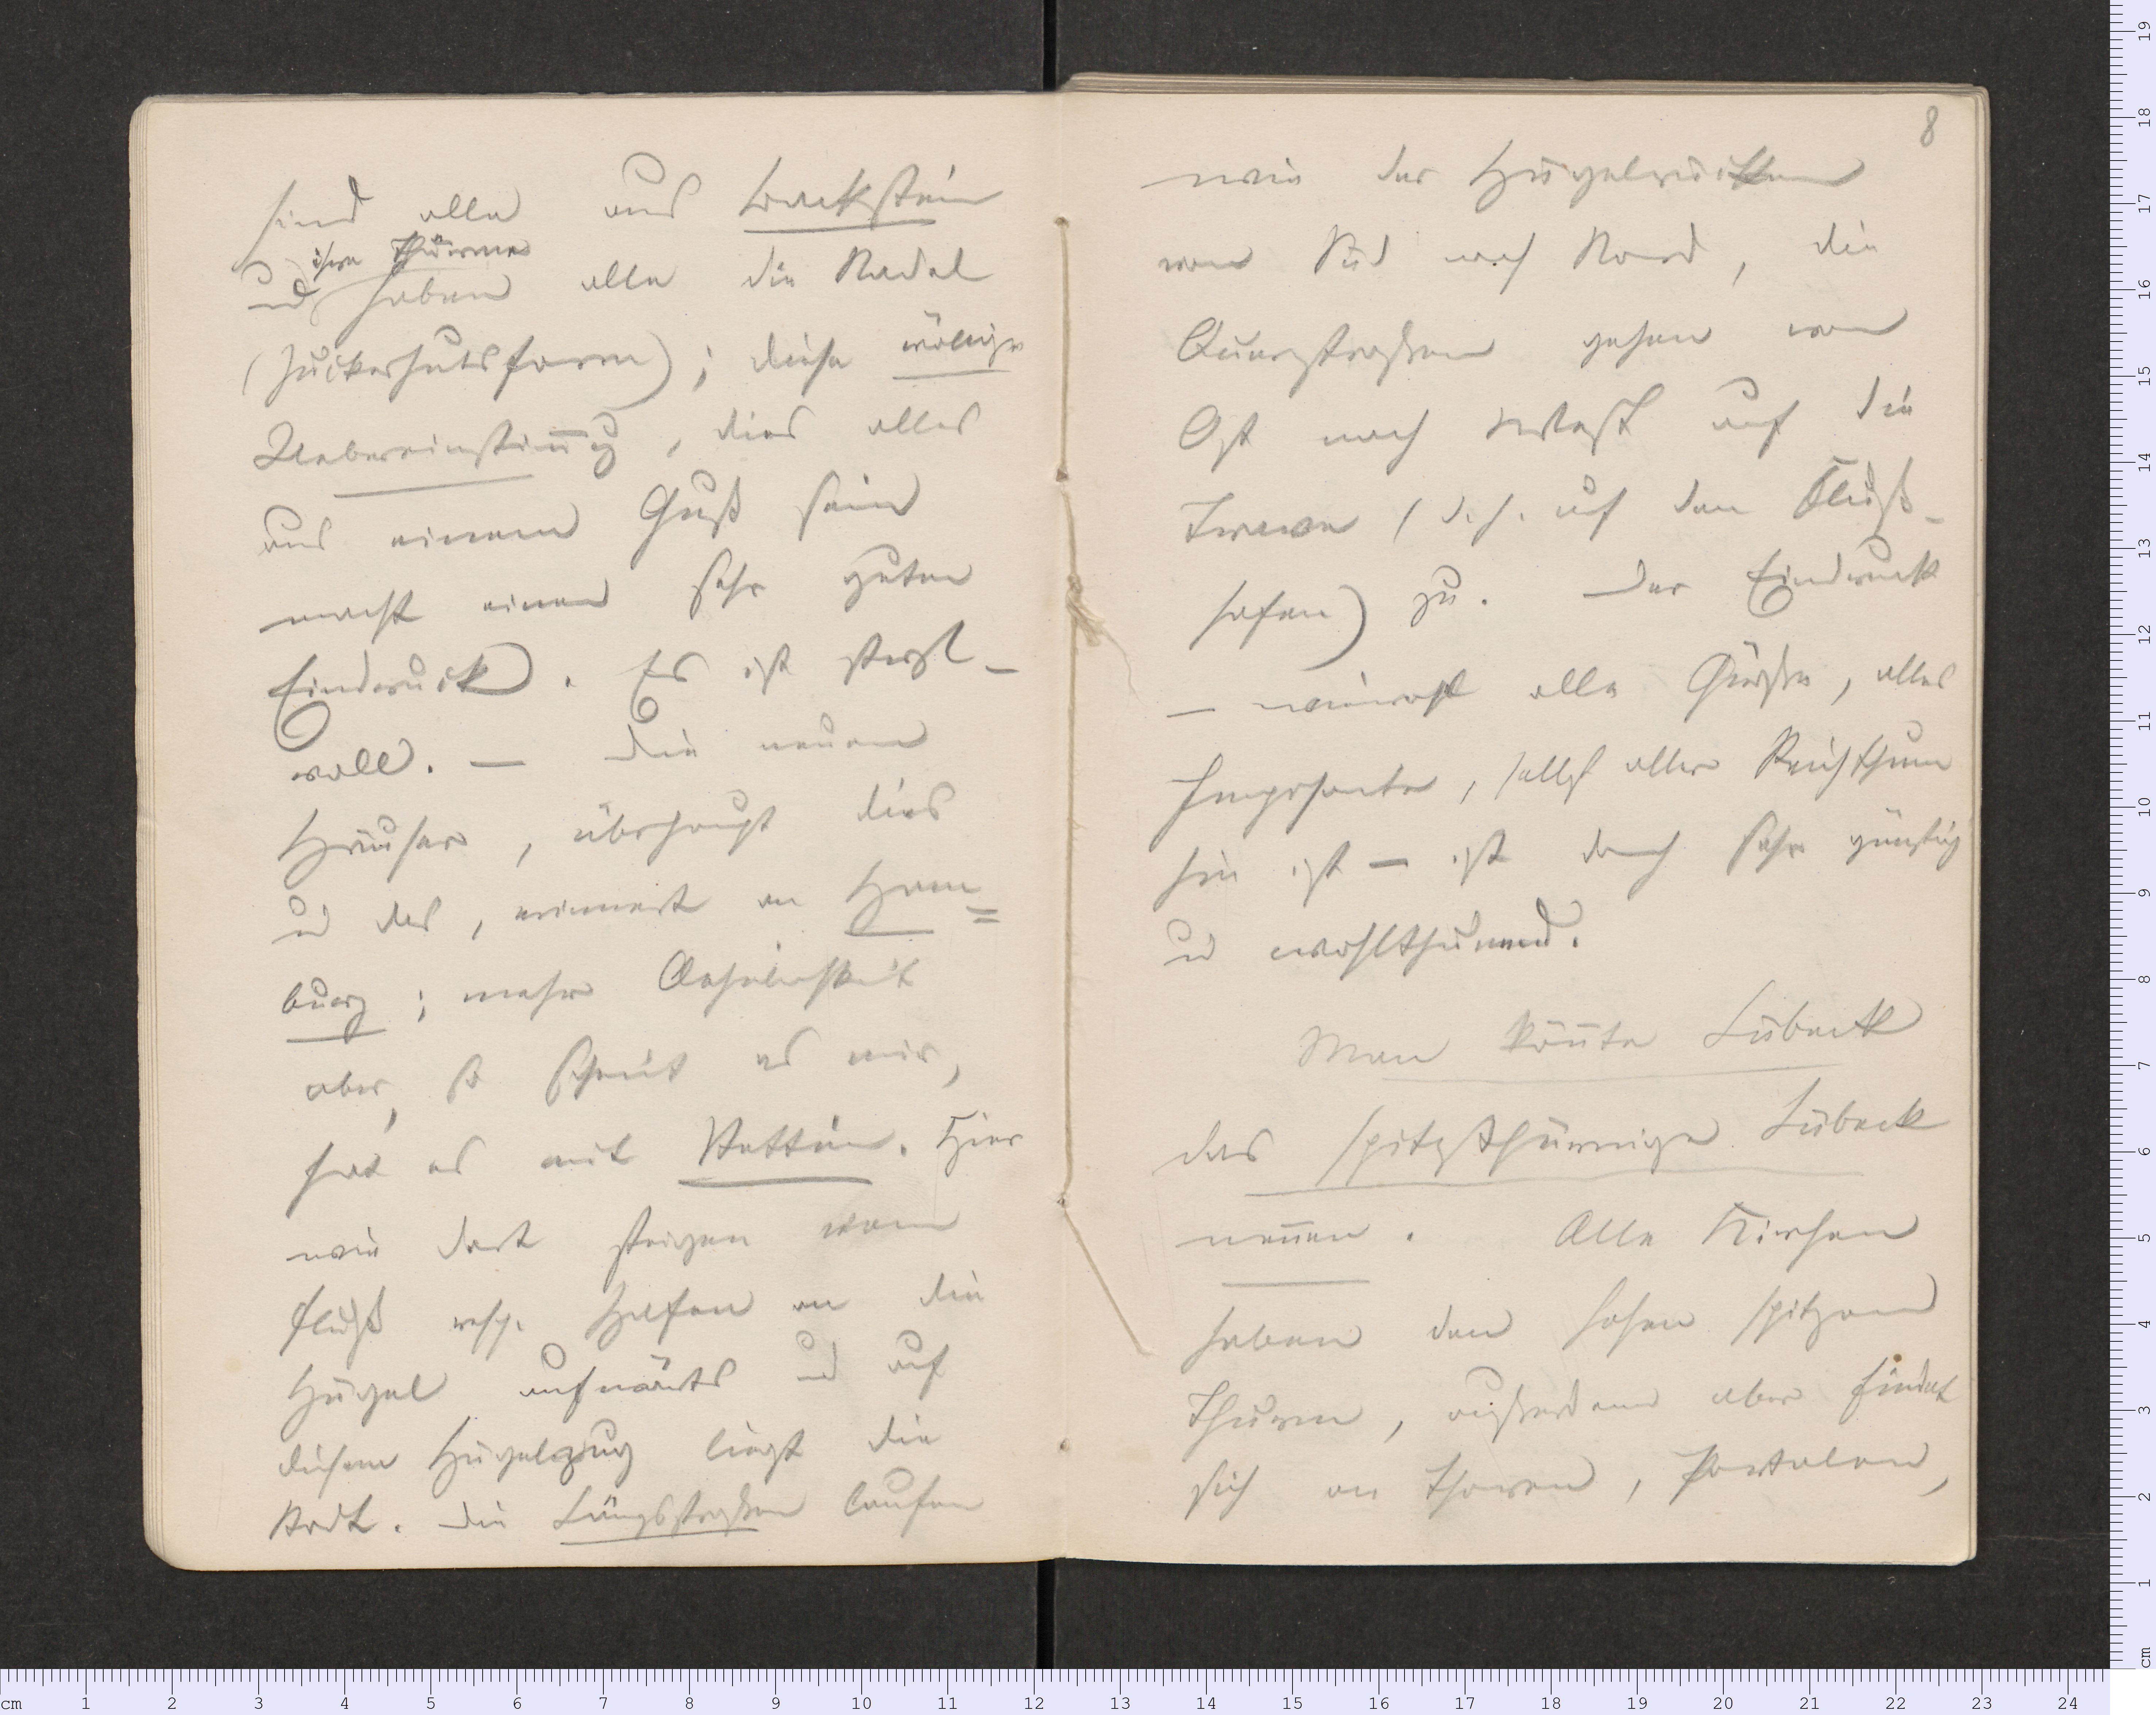 sind alle aus Backstein
ihre Thürme
und haben alle die Nadel
(Zuckerhutsform); diese völlige
Uebereinstim̄ung, dies alles
aus einem Guß sein
macht einen sehr guten
Eindruck. Es ist styl-
voll. — Die neuen
Häuser, überhaupt dies
und das, erinnert an Ham=
burg; mehr Aehnlichkeit
aber, so scheint es mir,
hat es mit Stettin. Hier
wie dort steigen vom
Fluß resp. Hafen an die
Hügel aufwärts und auf
diesem Hügelzug liegt die
Stadt. Die Längsstraßen laufen
8
wie der Hügelrücken
von Süd nach Nord, die
Querstraßen gehen von
Ost nach West auf die
Trave (d. h. auf den Fluß-
hafen) zu. Der Eindruck
— wiewohl alle Größe, alles
Imposante, selbst aller Reichthum
hin ist — ist doch sehr günstig
und wohlthuend.
Man kön̄te Lübeck
das spitzthürmige Lübeck
nen̄en. Alle Kirchen
haben den hohen spitzen
Thurm, außerdem aber findet
sich an Thoren, Portalen,